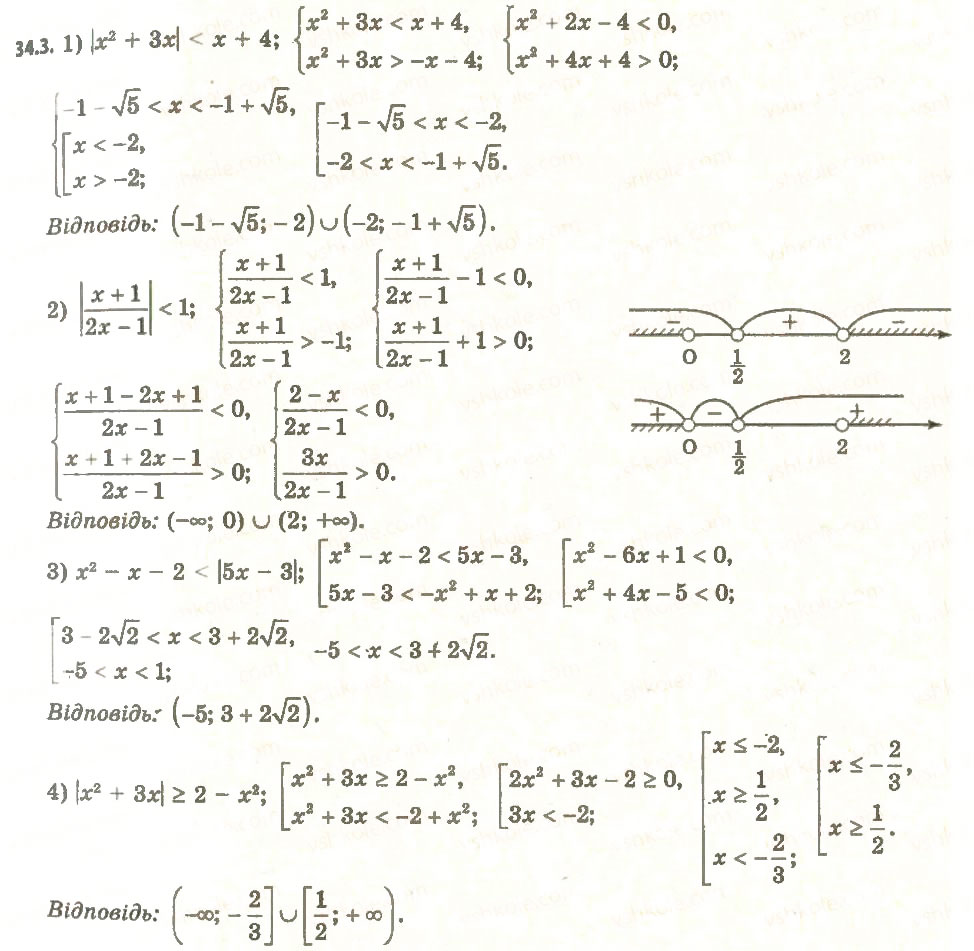 34.3. 1) |x² + 3x| < x + 4; { x² + 3x < x + 4, x² + 3x > -x - 4; { x² + 2x - 4 < 0, x² + 4x + 4 > 0;
{ -1 - √5 < x < -1 + √5, [ x < -2, x > -2; [ -1 - √5 < x < -2, -2 < x < -1 + √5.
Відповідь: (-1 - √5; -2) ∪ (-2; -1 + √5).
2) |(x + 1)/(2x - 1)| < 1; { (x + 1)/(2x - 1) < 1, (x + 1)/(2x - 1) > -1; { (x + 1)/(2x - 1) - 1 < 0, (x + 1)/(2x - 1) + 1 > 0;
- + -
0 1/2 2
+ - +
0 1/2 2
{ (x + 1 - 2x + 1)/(2x - 1) < 0, (x + 1 + 2x - 1)/(2x - 1) > 0; { (2 - x)/(2x - 1) < 0, 3x/(2x - 1) > 0.
Відповідь: (-∞; 0) ∪ (2; +∞).
3) x² - x - 2 < |5x - 3|; [ x² - x - 2 < 5x - 3, 5x - 3 < -x² + x + 2; [ x² - 6x + 1 < 0, x² + 4x - 5 < 0;
[ 3 - 2√2 < x < 3 + 2√2, -5 < x < 1; -5 < x < 3 + 2√2.
Відповідь: (-5; 3 + 2√2).
4) |x² + 3x| ≥ 2 - x²; [ x² + 3x ≥ 2 - x², x² + 3x < -2 + x²; [ 2x² + 3x - 2 ≥ 0, 3x < -2; [ x ≤ -2, x ≥ 1/2, x < -2/3; [ x ≤ -2/3, x ≥ 1/2.
Відповідь: (-∞; -2/3] ∪ [1/2; +∞).